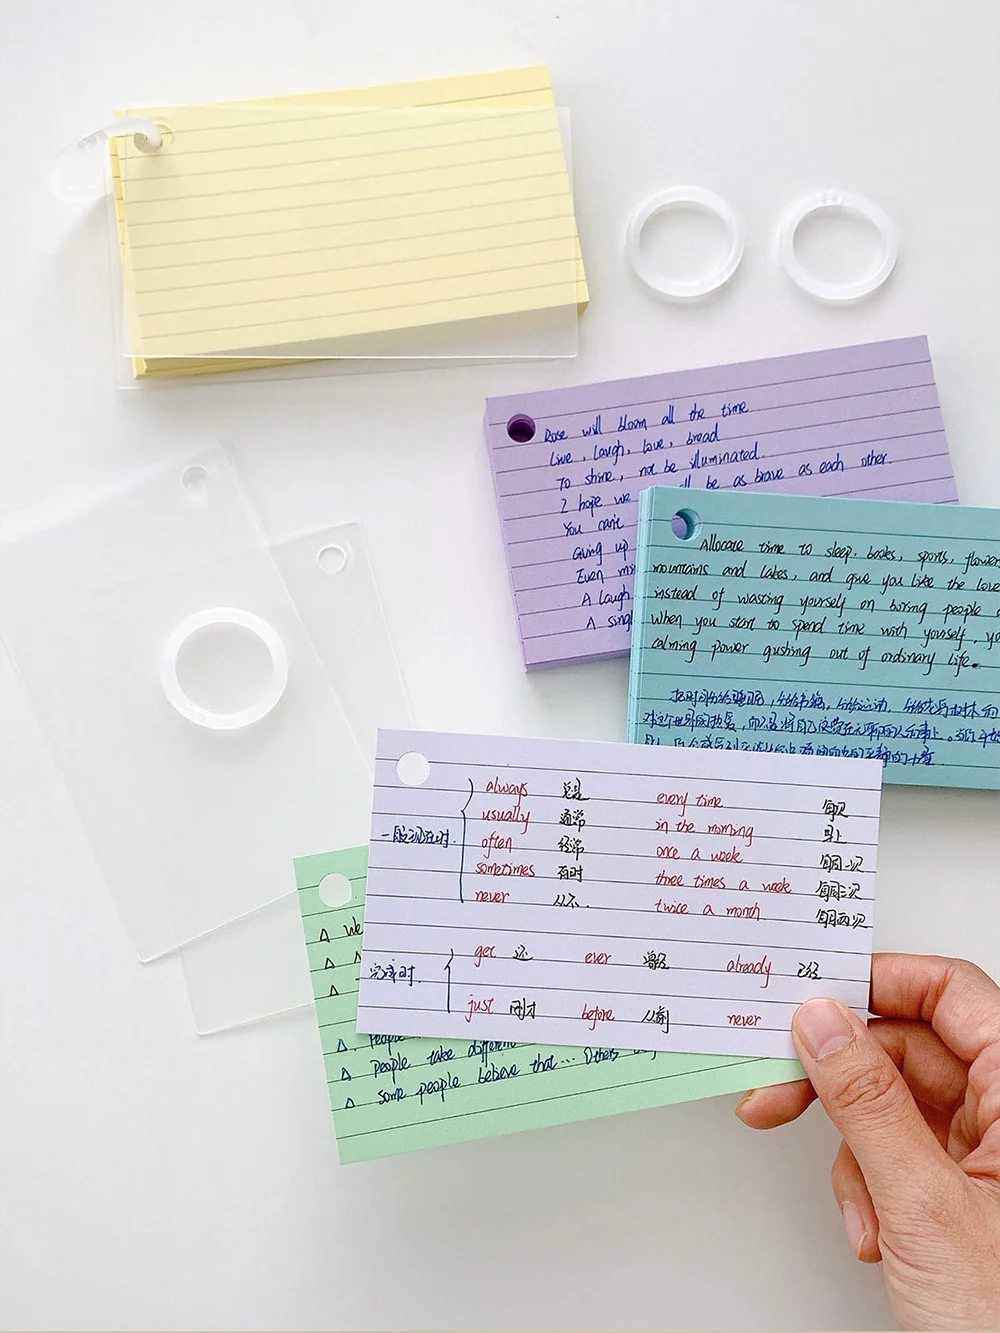 Rose will bloom all the time
Live, laugh, love, bread
To shine, not be illuminated.
I hope we all be as brave as each other.
You can't
Giving up
Even
A laugh
A singl
Allocate time to sleep, books, sports, flower
mountains and lakes, and give you like the love
instead of wasting yourself on boring people
When you start to spend time with yourself, yo
calming power gushing out of ordinary life.
把时间分给睡眠，分给书籍，分给运动，分给花鸟山林和
对这个世界的热爱，而不是将自己浪费在无聊的人和事上。当你开始
一般现在时.
always 总是 every time 每次
usually 通常 in the morning 早上
often 经常 once a week 每周一次
sometimes 有时 three times a week 每周三次
never 从不. twice a month 每月两次
完成时.
yet 还 ever 曾经 already 已经
just 刚才 before 从前 never
△ We
△
△
△. People
△ People take different
△ some people believe that... Others